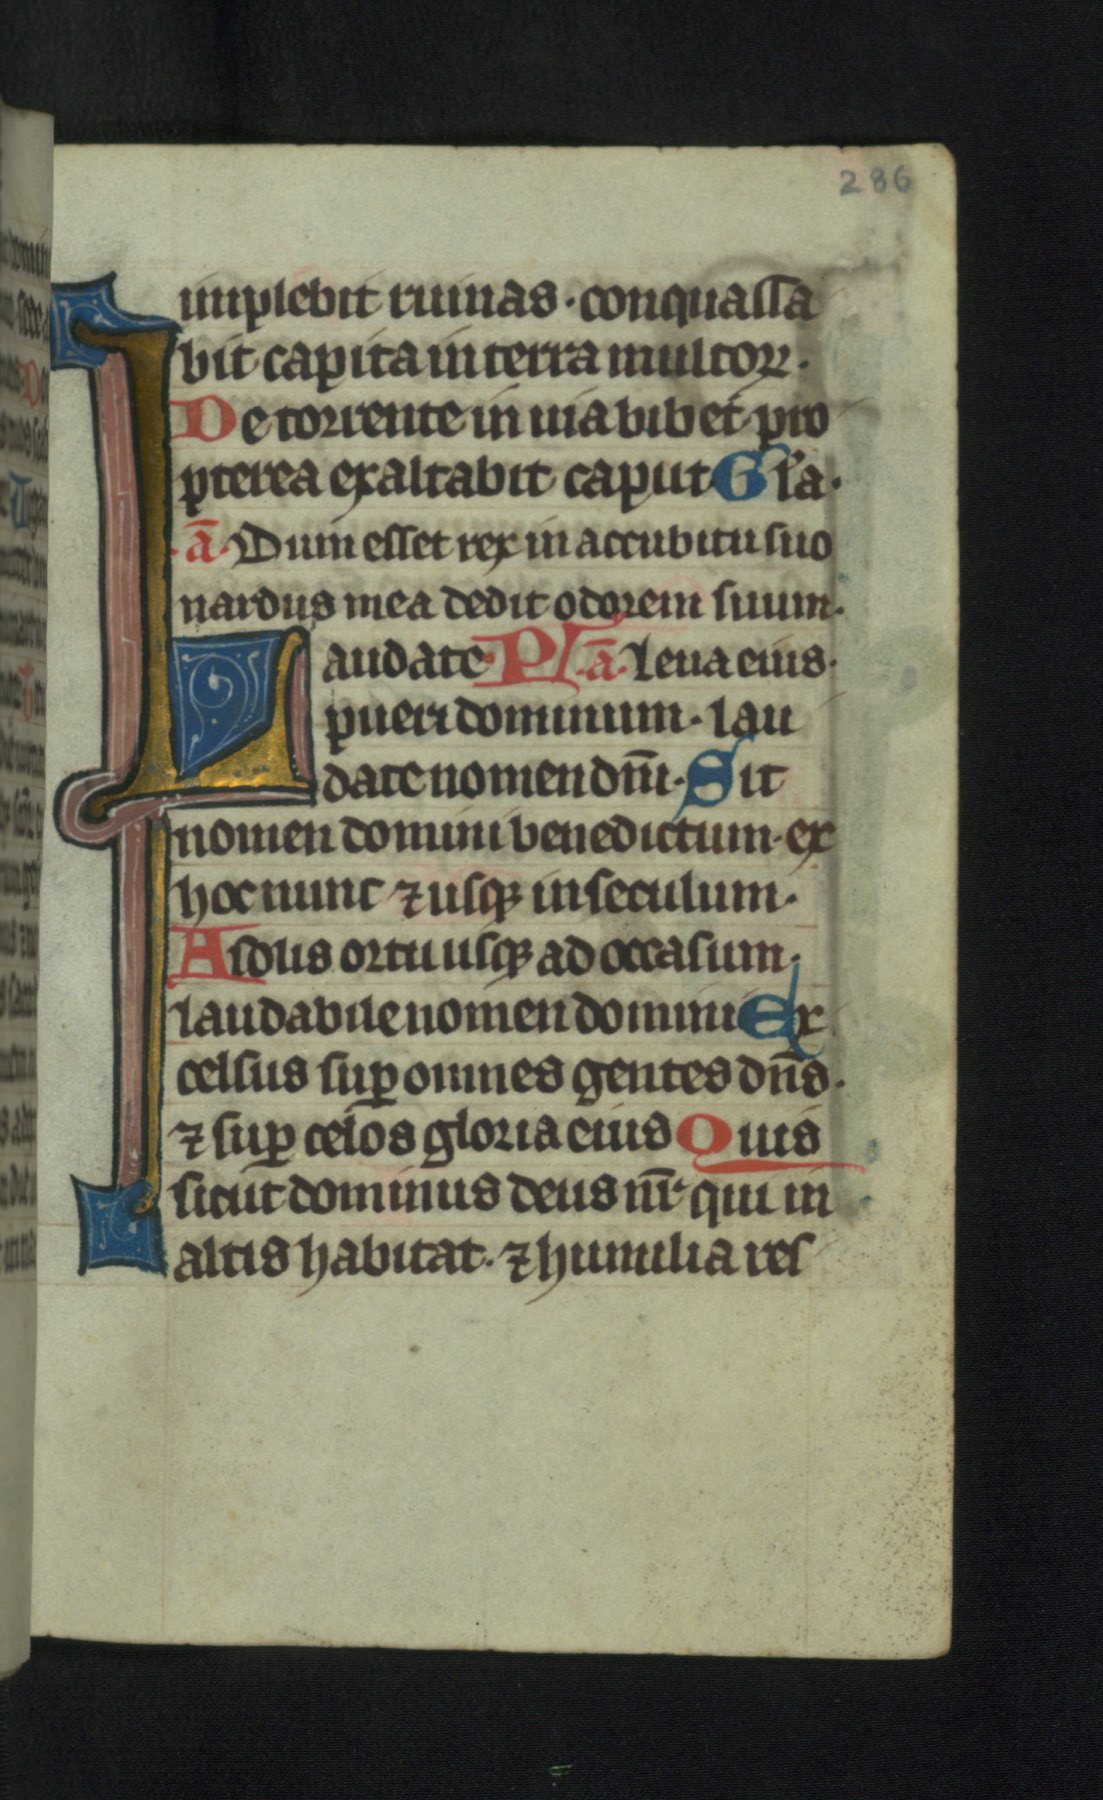 286
implebit ruinas · conquassa
bit capita in terra multoꝝ ·
De torrente in uia bibet · pro
pterea exaltabit caput Gl̃a ·
· a̅ · Dum esset rex in accubitu suo
nardus mea dedit odorem suum ·
Laudate · Ps̃ · a̅ · leua eius ·
pueri dominum · lau
date nomen dñi · Sit
nomen domini benedictum · ex
hoc nunc ⁊ usqꝫ in seculum ·
A solus ortu usqꝫ ad occasum ·
laudabile nomen domini Ex
celsus suꝑ omnes gentes dñs ·
⁊ suꝑ celos gloria eius Quis
sicut dominus deus nr̃ · qui in
altis habitat · ⁊ humilia res